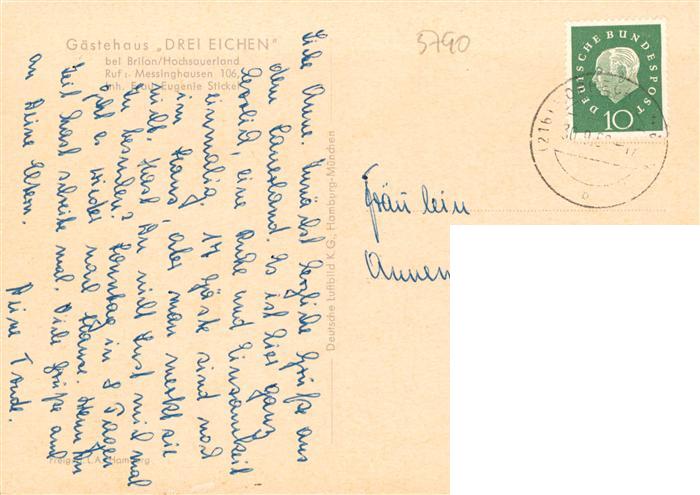 Gästehaus „DREI EICHEN"
bei Brilon/Hochsauerland
Ruf: Messinghausen 106,
Inh. Frau Eugenie Stickel
5790
DEUTSCHE BUNDESPOST
10
(216)
Liebe Anne. Zunächst herzliche Grüße aus
dem Sauerland. Es ist hier ganz
herrlich, eine Ruhe und Einsamkeit
einmalig. 17 Gäste sind noch
im Haus, aber man merkt sie
nicht. Hast Du nicht Lust mich mal
zu besuchen? Sonntag in 8 Tagen
geht es wieder nach Hause. Wenn Du
Zeit hast schreibe mal. Viele Grüße auch
an Deine Eltern.
Deine
Deutsche Luftbild K.G., Hamburg-München
Fräulein
Annem